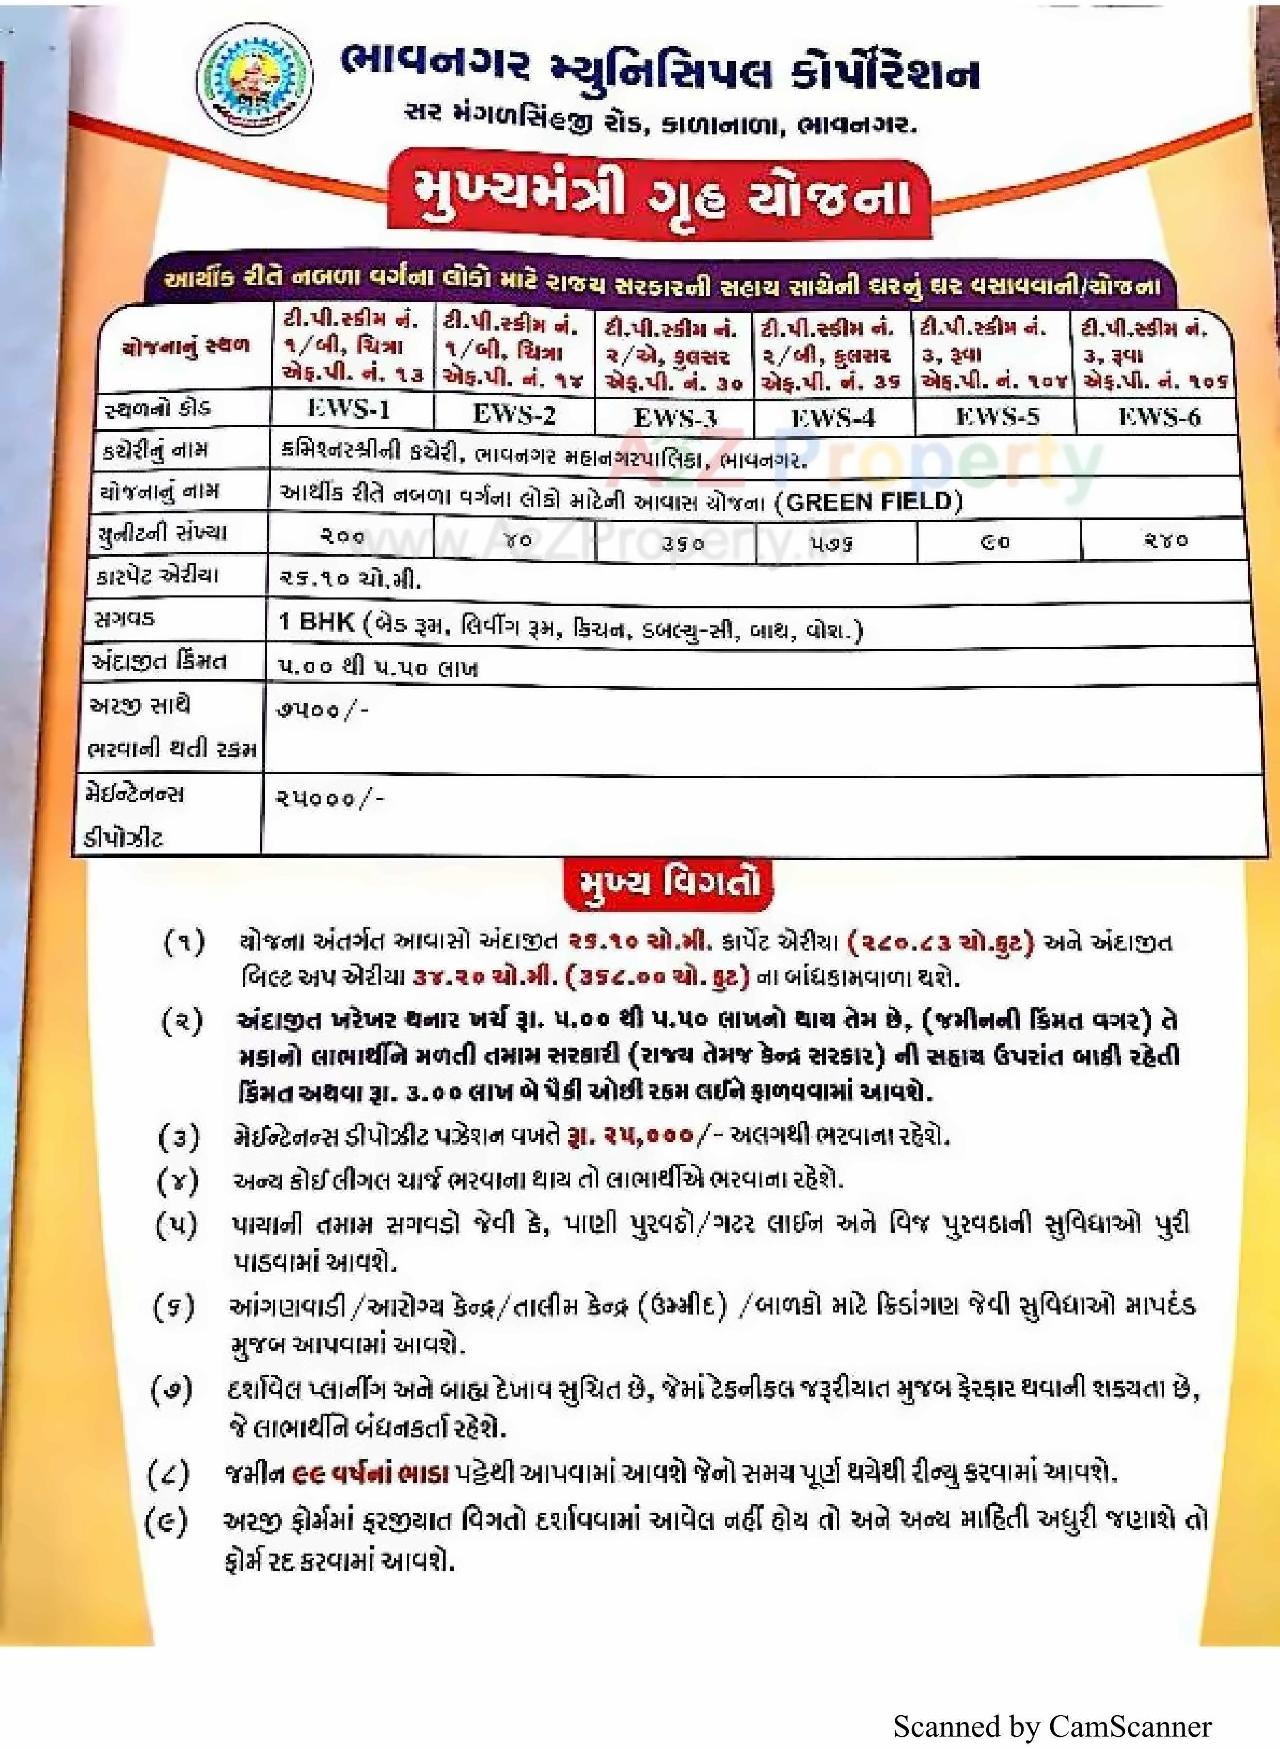 ભાવનગર મ્યુનિસિપલ કોર્પોરેશન
સર મંગળસિંહજી રોડ, કાળાનાળા, ભાવનગર.
મુખ્યમંત્રી ગૃહ યોજના
આર્થીક રીતે નબળા વર્ગના લોકો માટે રાજય સરકારની સહાય સાથેની ઘરનું ઘર વસાવવાની/યોજના
યોજનાનું સ્થળ
ટી.પી.સ્કીમ નં. ૧/બી, ચિત્રા એફ.પી. નં. ૧૩
ટી.પી.સ્કીમ નં. ૧/બી, ચિત્રા એફ.પી. નં. ૧૪
ટી.પી.સ્કીમ નં. ૨/એ, ફુલસર એફ.પી. નં. ૩૦
ટી.પી.સ્કીમ નં. ૨/બી, ફુલસર એફ.પી. નં. ૩૬
ટી.પી.સ્કીમ નં. ૩, રૂવા એફ.પી. નં. ૧૦૪
ટી.પી.સ્કીમ નં. ૩, રૂવા એફ.પી. નં. ૧૦૬
સ્થળનો કોડ EWS-1 EWS-2 EWS-3 EWS-4 EWS-5 EWS-6
કચેરીનું નામ કમિશ્નરશ્રીની કચેરી, ભાવનગર મહાનગરપાલિકા, ભાવનગર.
A2Z Property
યોજનાનું નામ આર્થીક રીતે નબળા વર્ગના લોકો માટેની આવાસ યોજના (GREEN FIELD)
યુનીટની સંખ્યા ૨૦૦ ૪૦ ૩૬૦ ૫૭૬ ૯૦ ૨૪૦
www.A2ZProperty.in
કારપેટ એરીયા ૨૬.૧૦ ચો.મી.
સગવડ 1 BHK (બેડ રૂમ, લિવીંગ રૂમ, કિચન, ડબલ્યુ-સી, બાથ, વોશ.)
અંદાજીત કિંમત ૫.૦૦ થી ૫.૫૦ લાખ
અરજી સાથે ૭૫૦૦/-
ભરવાની થતી રકમ
મેઈન્ટેનન્સ ૨૫૦૦૦/-
ડીપોઝીટ
મુખ્ય વિગતો
(૧) યોજના અંતર્ગત આવાસો અંદાજીત ૨૬.૧૦ ચો.મી. કાર્પેટ એરીયા (૨૮૦.૮૩ ચો.ફુટ) અને અંદાજીત
બિલ્ટ અપ એરીયા ૩૪.૨૦ ચો.મી. (૩૬૮.૦૦ ચો. ફુટ) ના બાંધકામવાળા થશે.
(૨) અંદાજીત ખરેખર થનાર ખર્ચ રૂા. ૫.૦૦ થી ૫.૫૦ લાખનો થાય તેમ છે, (જમીનની કિંમત વગર) તે
મકાનો લાભાર્થીને મળતી તમામ સરકારી (રાજ્ય તેમજ કેન્દ્ર સરકાર) ની સહાય ઉપરાંત બાકી રહેતી
કિંમત અથવા રૂા. ૩.૦૦ લાખ બે પૈકી ઓછી રકમ લઈને ફાળવવામાં આવશે.
(૩) મેઈન્ટેનન્સ ડીપોઝીટ પઝેશન વખતે રૂા. ૨૫,૦૦૦/- અલગથી ભરવાના રહેશે.
(૪) અન્ય કોઈ લીગલ ચાર્જ ભરવાના થાય તો લાભાર્થીએ ભરવાના રહેશે.
(૫) પાયાની તમામ સગવડો જેવી કે, પાણી પુરવઠો/ગટર લાઈન અને વિજ પુરવઠાની સુવિધાઓ પુરી
પાડવામાં આવશે.
(૬) આંગણવાડી/આરોગ્ય કેન્દ્ર/તાલીમ કેન્દ્ર (ઉમ્મીદ) /બાળકો માટે ક્રિડાંગણ જેવી સુવિધાઓ માપદંડ
મુજબ આપવામાં આવશે.
(૭) દર્શાવેલ પ્લાનીંગ અને બાહ્ય દેખાવ સુચિત છે, જેમાં ટેકનીકલ જરૂરીયાત મુજબ ફેરફાર થવાની શક્યતા છે,
જે લાભાર્થીને બંધનકર્તા રહેશે.
(૮) જમીન ૯૯ વર્ષનાં ભાડા પટ્ટેથી આપવામાં આવશે જેનો સમય પૂર્ણ થયેથી રીન્યુ કરવામાં આવશે.
(૯) અરજી ફોર્મમાં ફરજીયાત વિગતો દર્શાવવામાં આવેલ નહીં હોય તો અને અન્ય માહિતી અધુરી જણાશે તો
ફોર્મ રદ કરવામાં આવશે.
Scanned by CamScanner